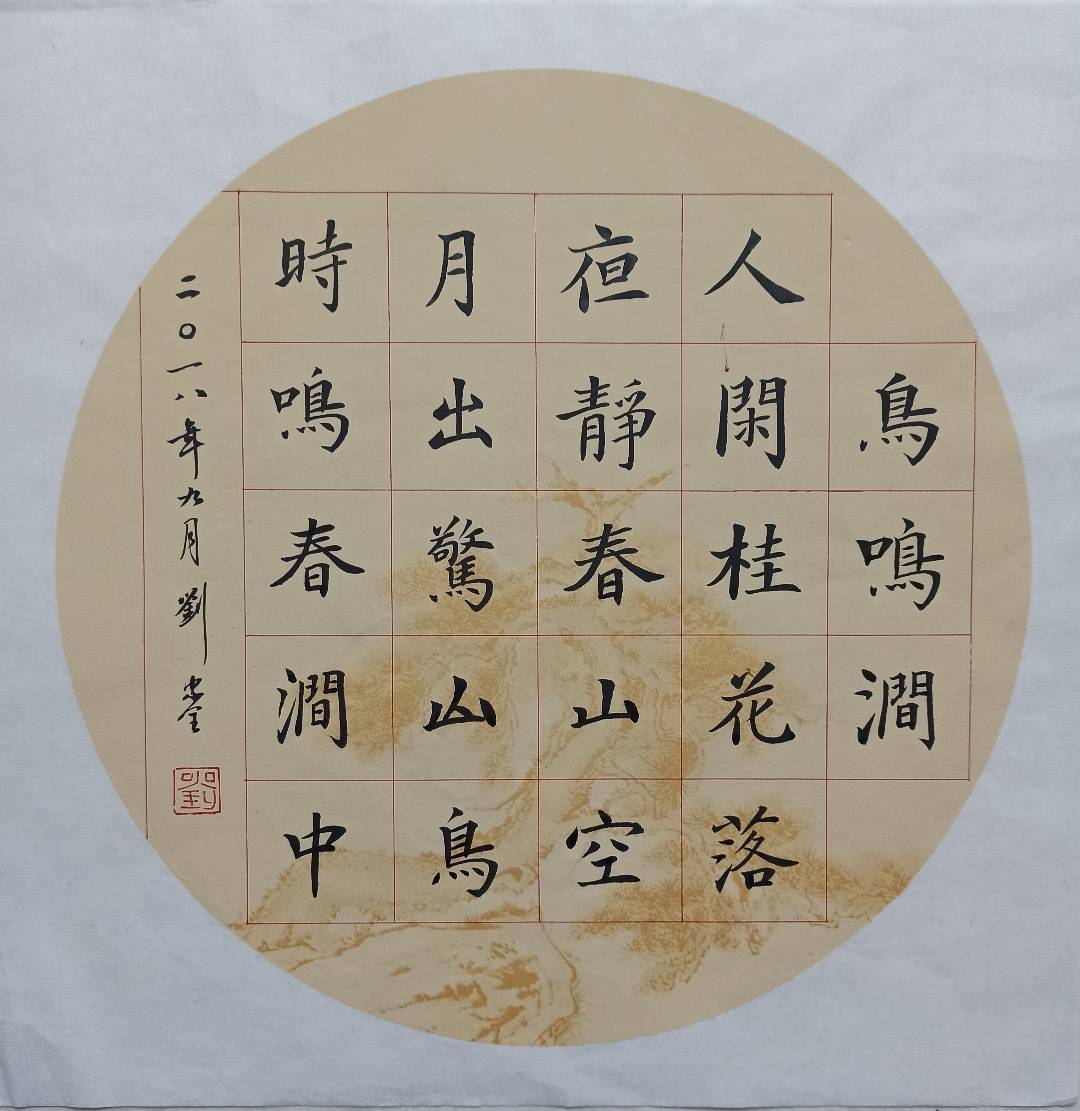 鳥鳴澗
人閑桂花落
亱靜春山空
月出驚山鳥
時鳴春澗中
二〇一八年九月劉
劉